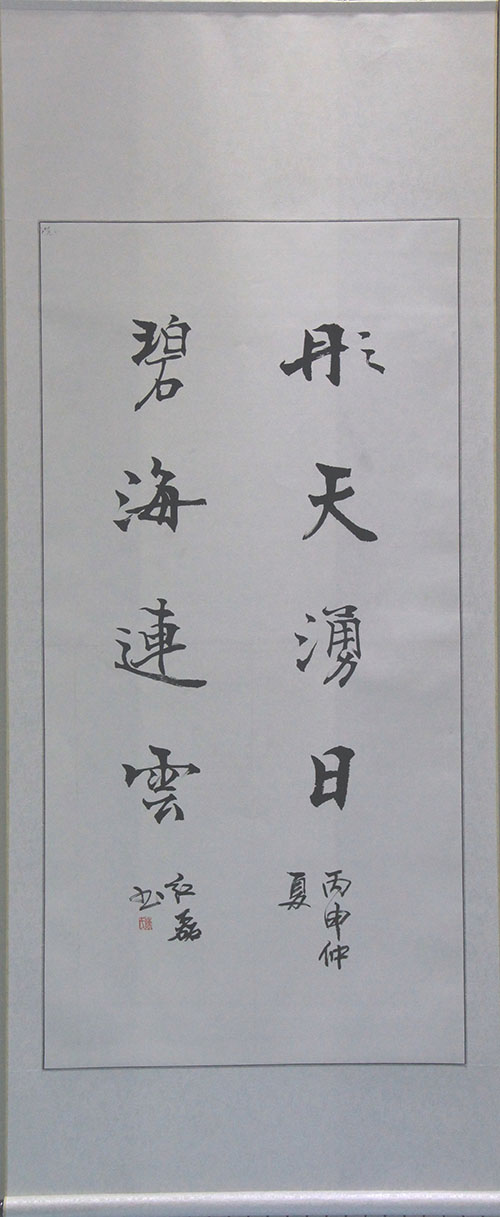 彤天湧日
丙申仲
夏
碧海連雲
红磊
书